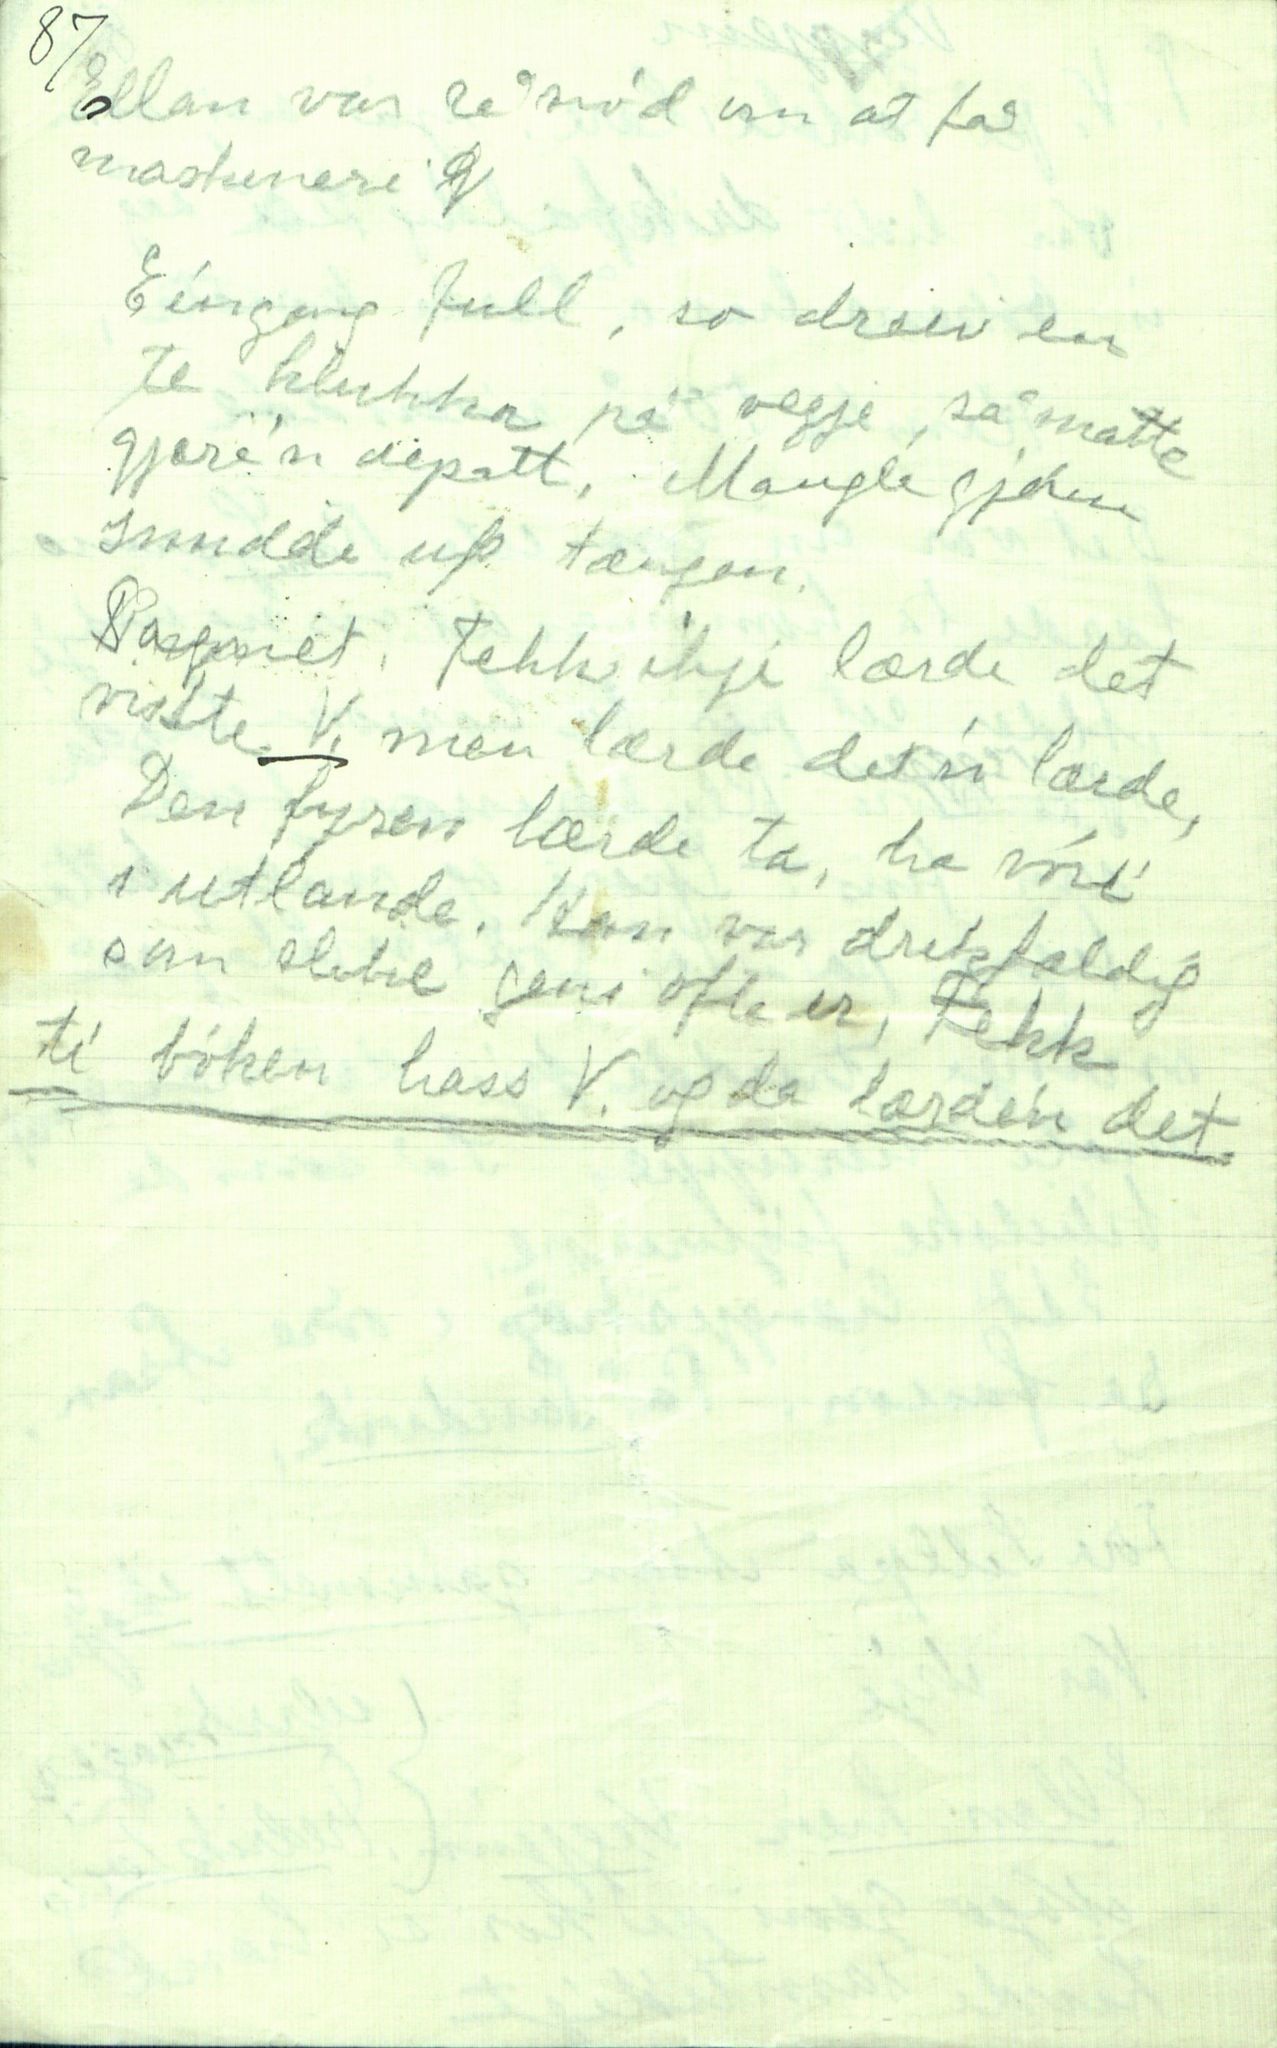 87
Ellan var så nö'd um at få
maskineri
Eingang full, so dreiv en
te klukka på vegje, så matte
gjere'n depatt. Mangle gjekn
snudde up tængen.
Pasgmet. Fekk ikje lærde det
visste V. men lærde det'n lærde,
Den fyren lærde ta, ha vöri
i utlande. Han var drikfældig
som slike geni ofte er, Fekk
ti böken hass V. og da lærde'n det